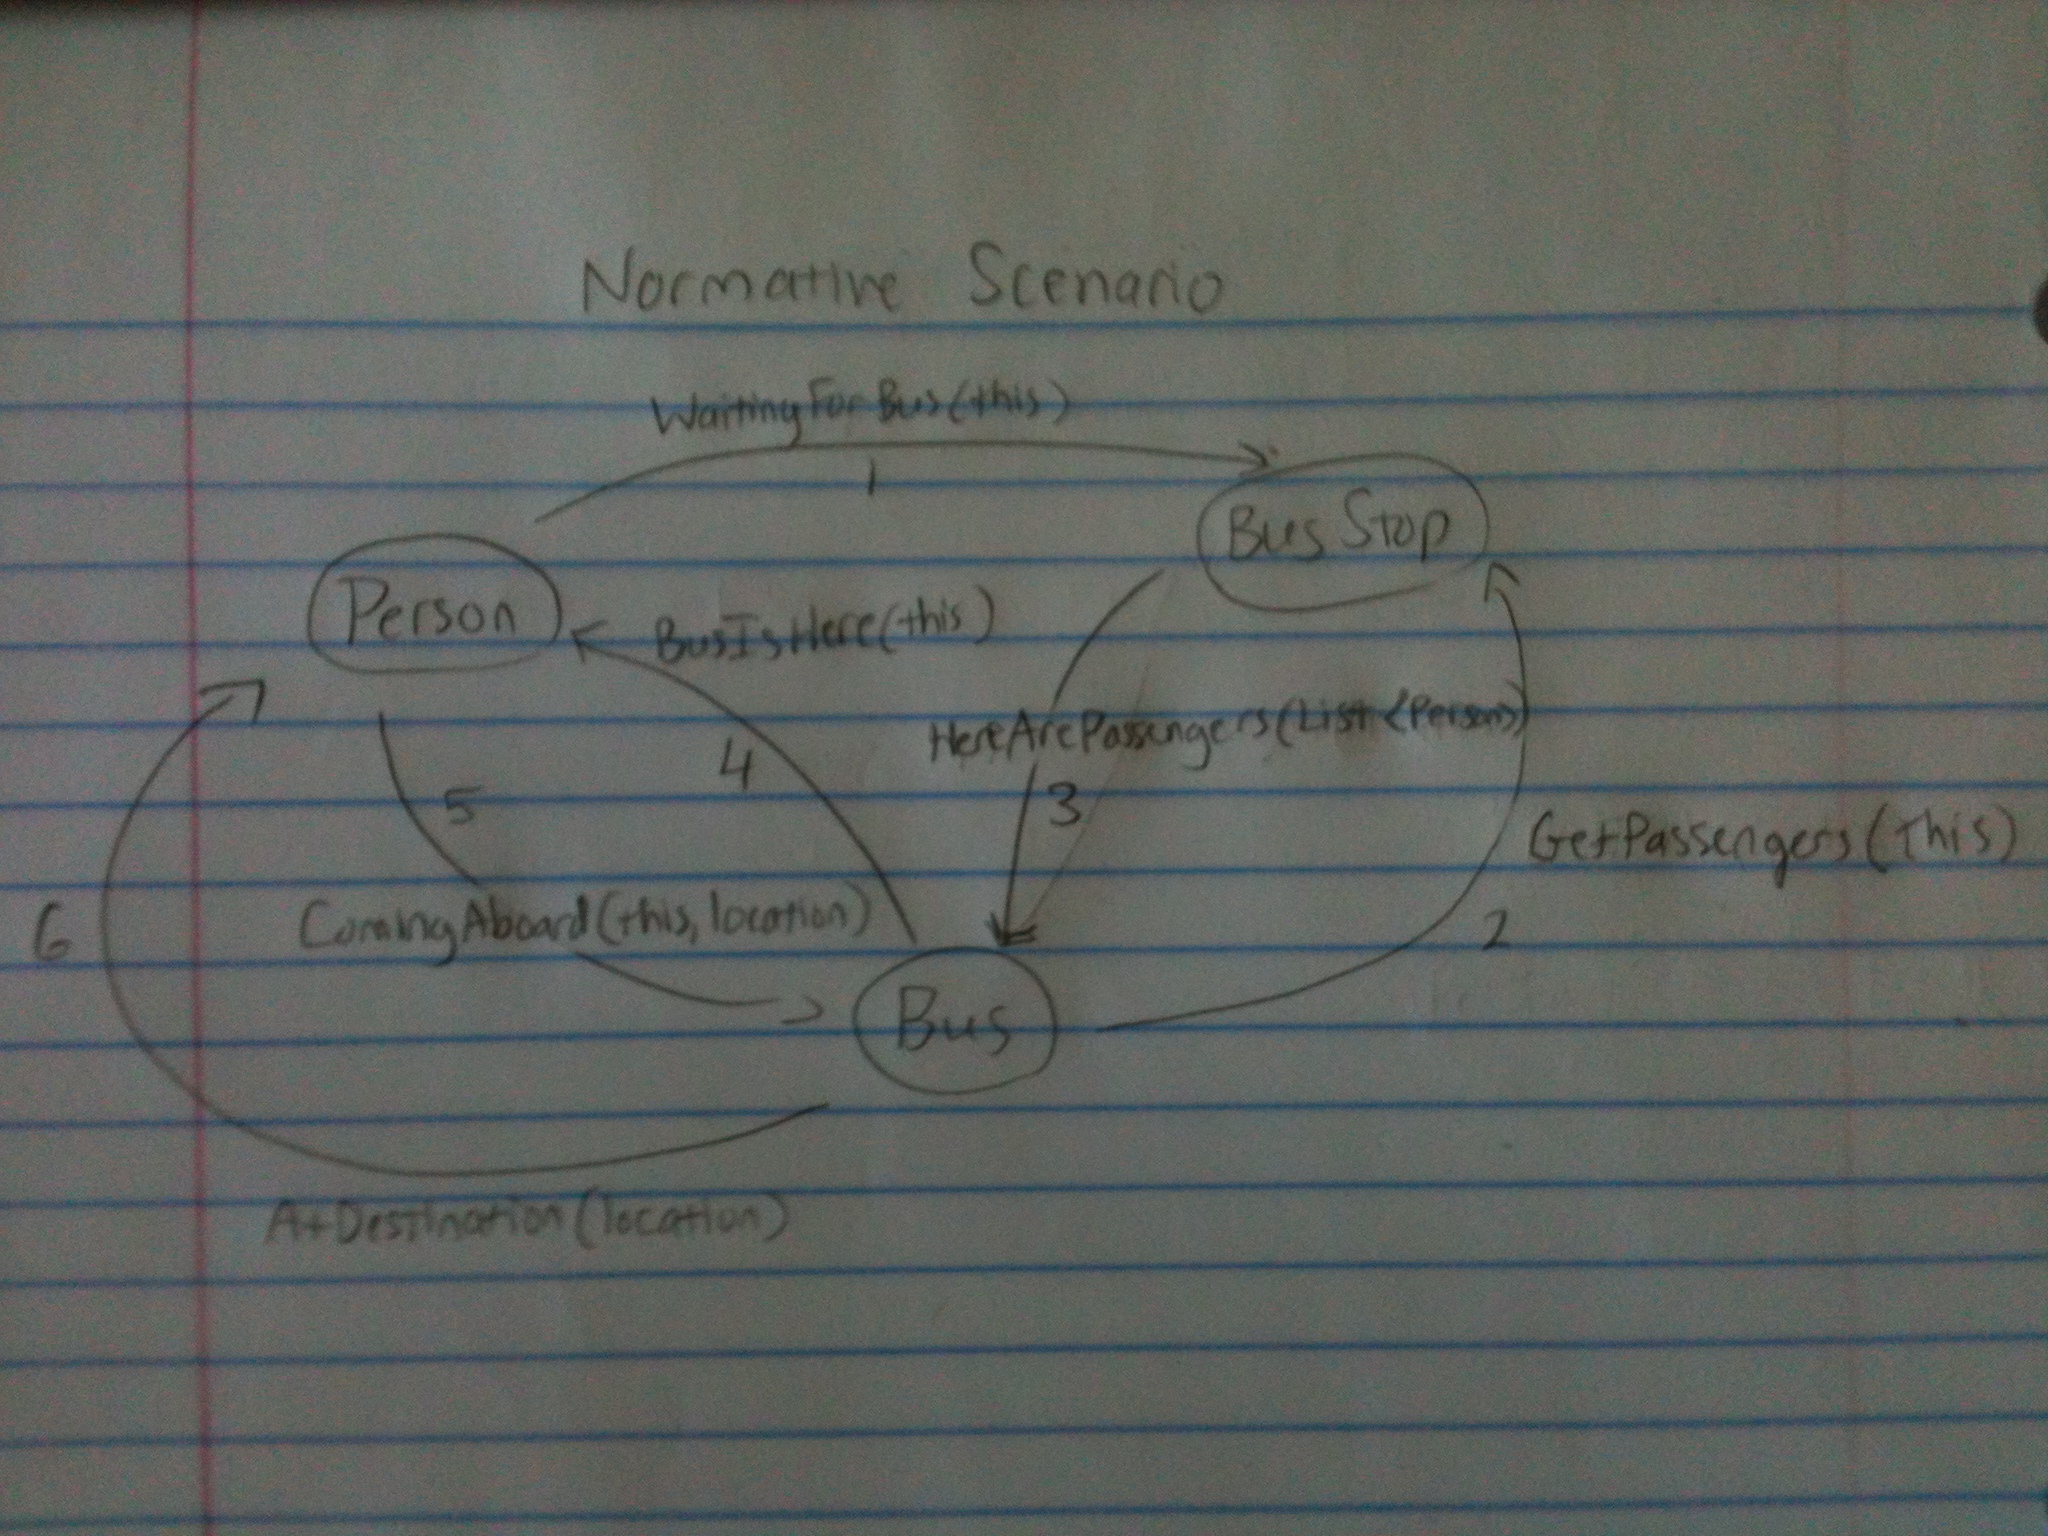 Normative Scenario
WaitingForBus(this)
1
Bus Stop
Person
BusIsHere(this)
HereArePassengers(List<Person>)
4
5
3
GetPassengers(this)
ComingAboard(this, location)
6
2
Bus
AtDestination(location)